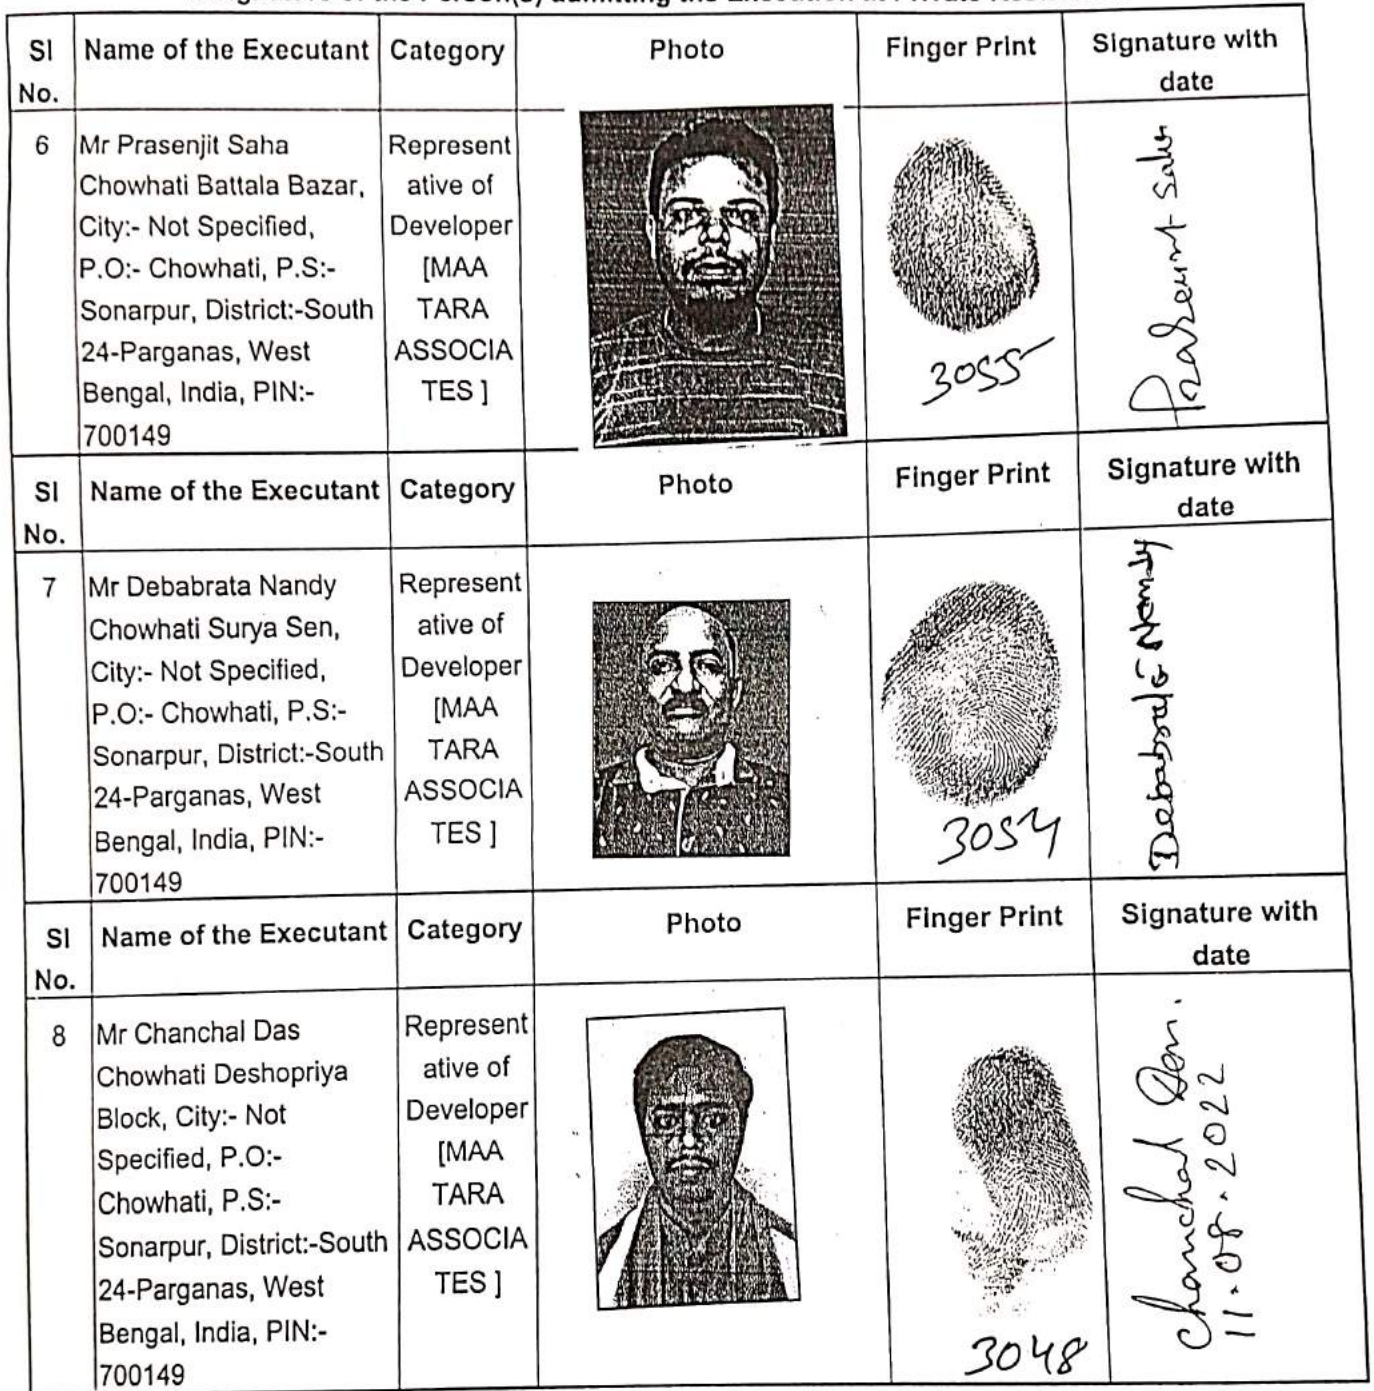 Signature of the Person(s) admitting the Execution at Private
Sl No. Name of the Executant Category Photo Finger Print Signature with date
6 Mr Prasenjit Saha
Chowhati Battala Bazar,
City:- Not Specified,
P.O:- Chowhati, P.S:-
Sonarpur, District:-South
24-Parganas, West
Bengal, India, PIN:-
700149
Represent
ative of
Developer
[MAA
TARA
ASSOCIA
TES ]
3055
Prasenjit Saha
Sl No. Name of the Executant Category Photo Finger Print Signature with date
7 Mr Debabrata Nandy
Chowhati Surya Sen,
City:- Not Specified,
P.O:- Chowhati, P.S:-
Sonarpur, District:-South
24-Parganas, West
Bengal, India, PIN:-
700149
Represent
ative of
Developer
[MAA
TARA
ASSOCIA
TES ]
3054
Debabrata Nandy
Sl No. Name of the Executant Category Photo Finger Print Signature with date
8 Mr Chanchal Das
Chowhati Deshopriya
Block, City:- Not
Specified, P.O:-
Chowhati, P.S:-
Sonarpur, District:-South
24-Parganas, West
Bengal, India, PIN:-
700149
Represent
ative of
Developer
[MAA
TARA
ASSOCIA
TES ]
3048
Chanchal Das.
11.08.2022